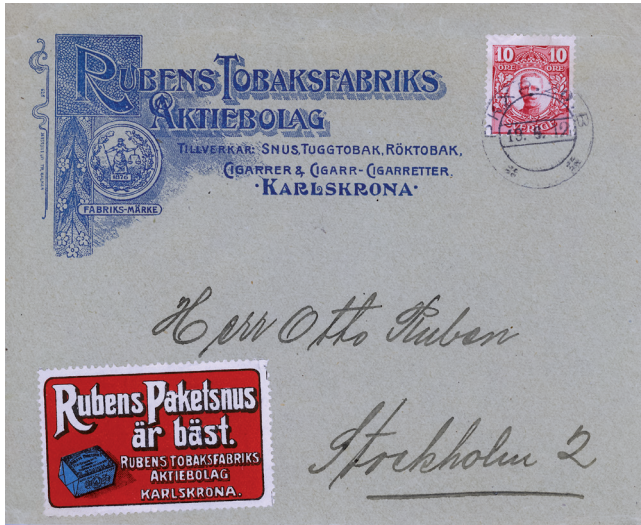 RUBENS TOBAKSFABRIKS
AKTIEBOLAG
TILLVERKAR: SNUS, TUGGTOBAK, RÖKTOBAK,
CIGARRER & CIGARR-CIGARRETTER.
·KARLSKRONA·
1876
FABRIKS-MÄRKE
10 10
ÖRE ÖRE
SVERIGE
Herr Otto Ruben
Stockholm 2
Rubens Paketsnus
är bäst.
RUBENS TOBAKSFABRIKS
AKTIEBOLAG
KARLSKRONA.